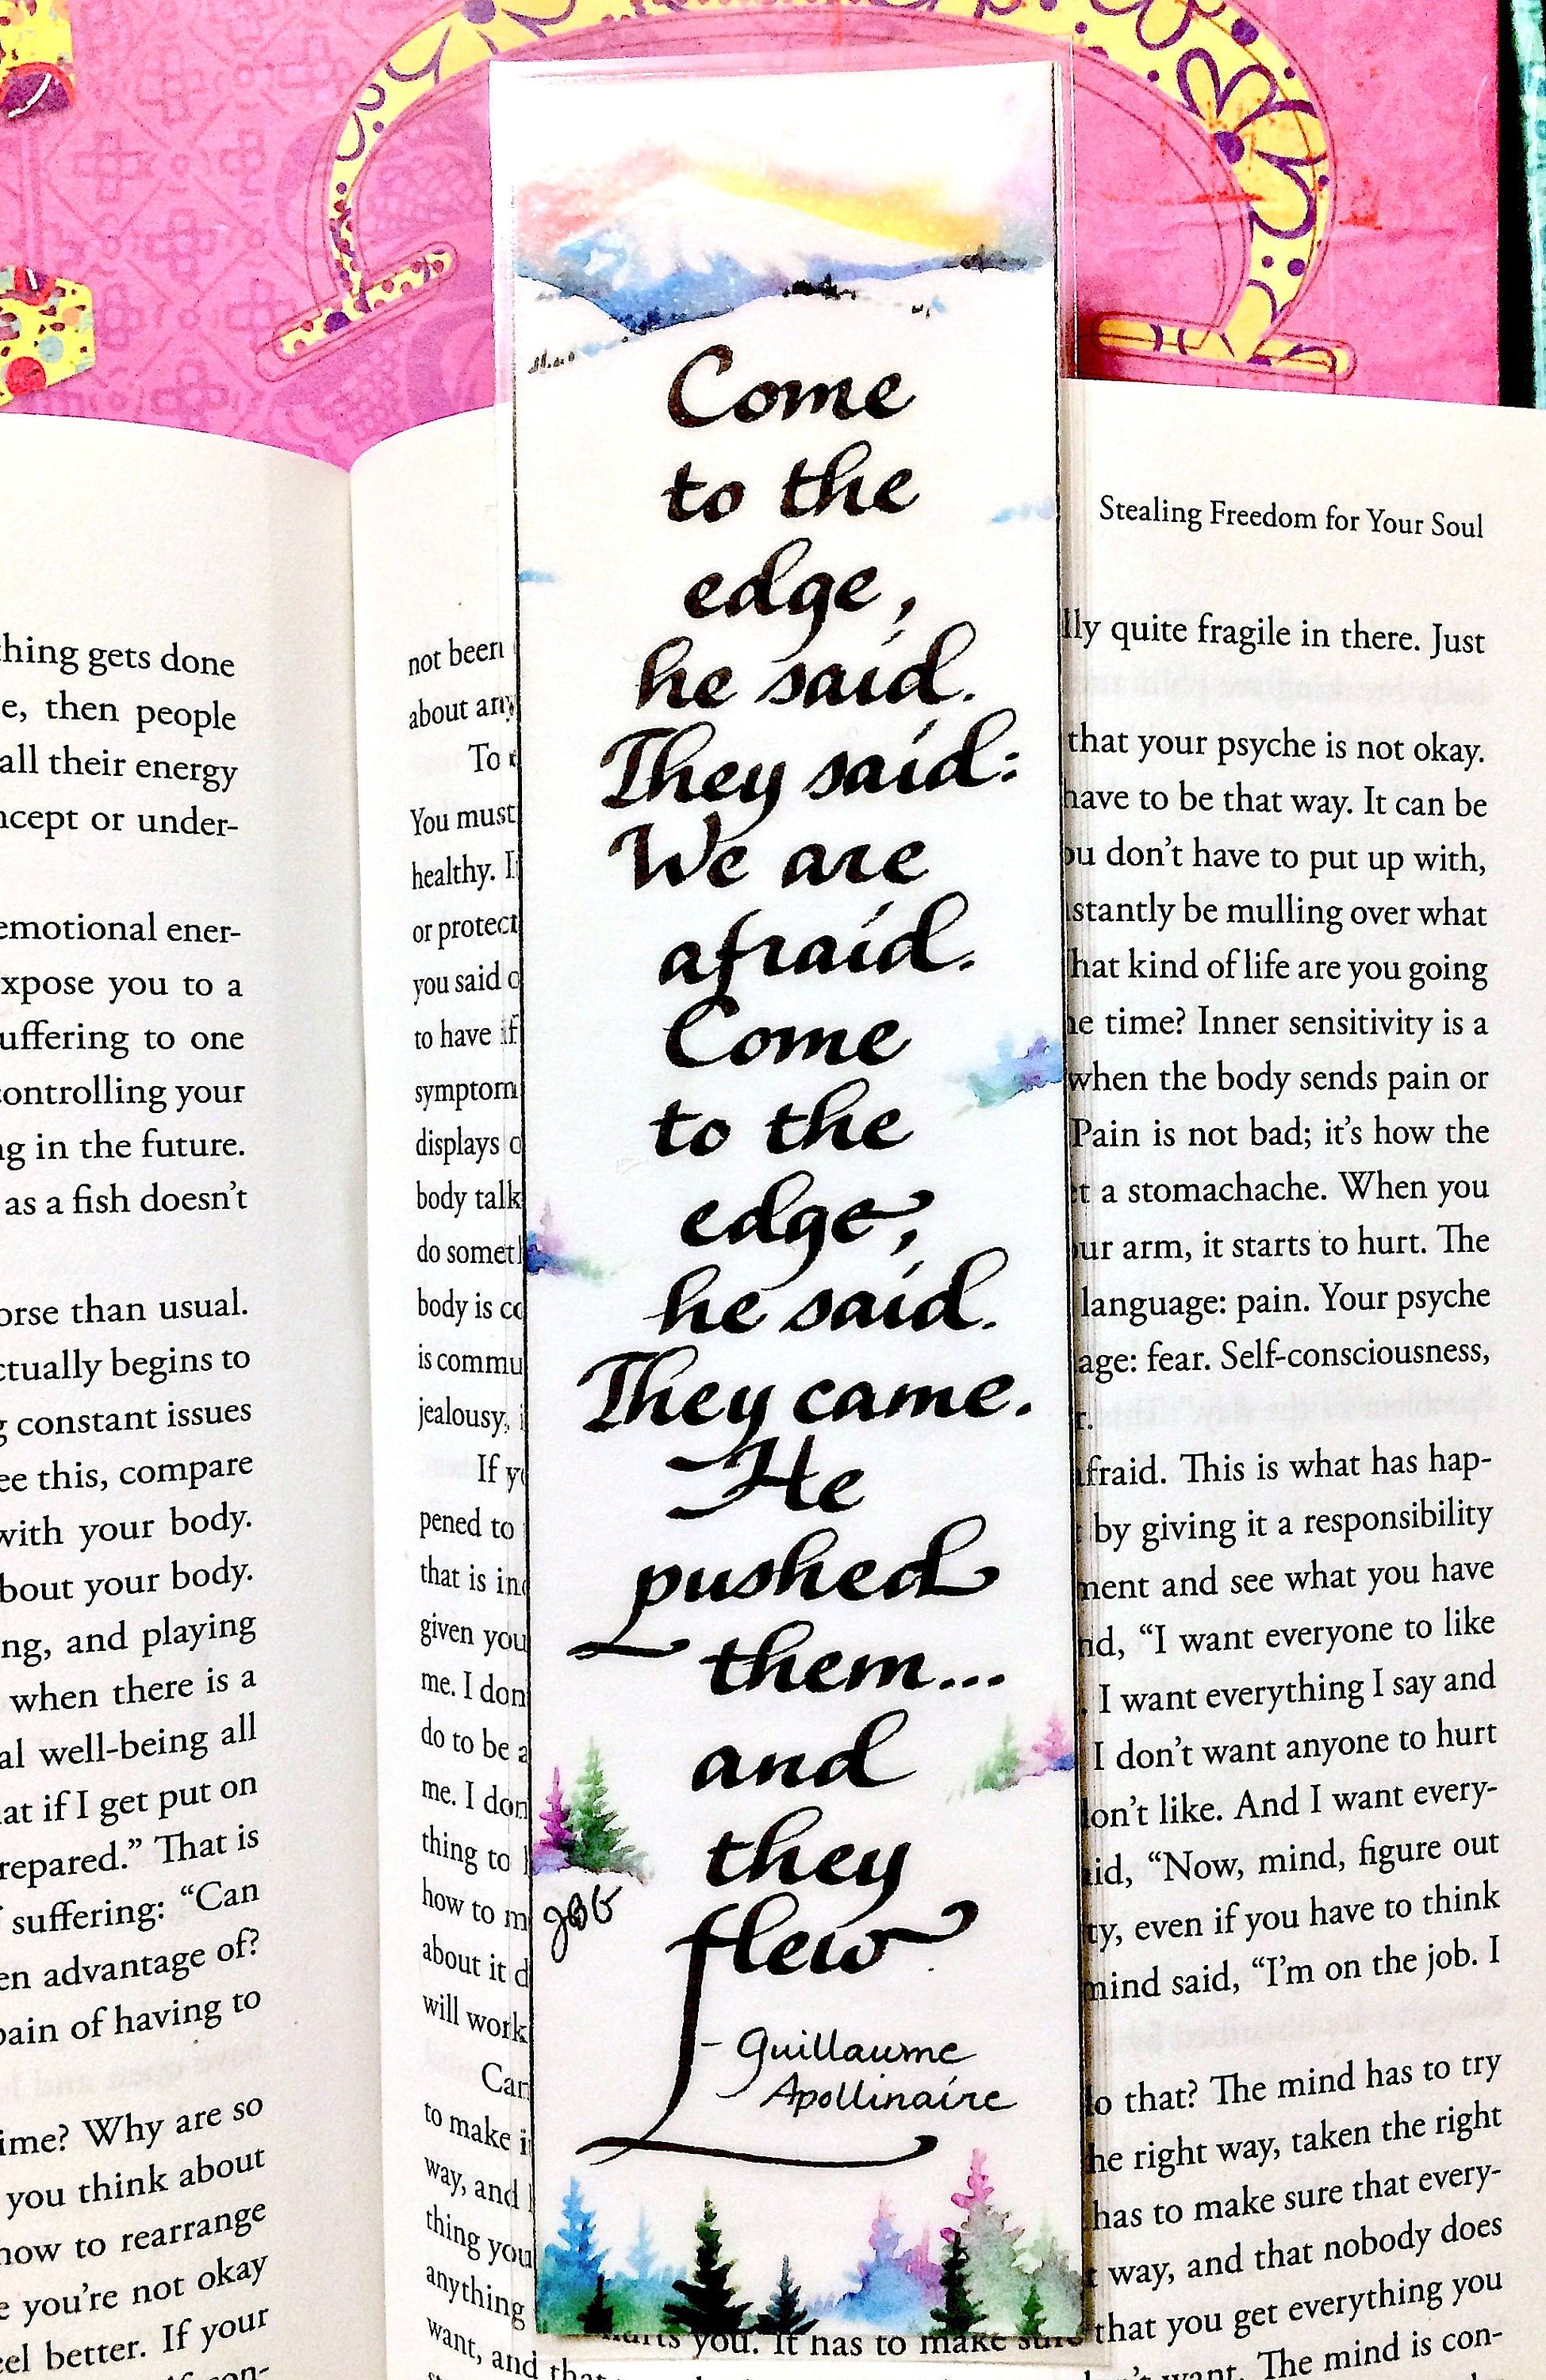 thing gets done
e, then people
all their energy
ncept or under-
emotional ener-
xpose you to a
uffering to one
controlling your
ng in the future.
as a fish doesn't
orse than usual.
ctually begins to
g constant issues
ee this, compare
with your body.
bout your body.
ng, and playing
when there is a
al well-being all
at if I get put on
repared.” That is
suffering: “Can
en advantage of?
pain of having to
ime? Why are so
you think about
how to rearrange
e you're not okay
eel better. If your
not been
about any
To
You must
healthy. I
or protect
you said o
to have if
symptom
displays o
body talk
do somet
body is co
is commu
jealousy,
If y
pened to
that is in
given you
me. I don
do to be a
me. I don
thing to
how to m
about it d
will work
Can
to make i
way, and
thing you
anything
want, and that
Come
to the
edge,
he said.
They said:
We are
afraid.
Come
to the
edge,
he said.
They came.
He
pushed
them...
and
they
flew
- Guillaume
Apollinaire
Stealing Freedom for Your Soul
lly quite fragile in there. Just
that your psyche is not okay.
have to be that way. It can be
ou don't have to put up with,
nstantly be mulling over what
hat kind of life are you going
e time? Inner sensitivity is a
when the body sends pain or
Pain is not bad; it's how the
t a stomachache. When you
our arm, it starts to hurt. The
language: pain. Your psyche
age: fear. Self-consciousness,
r.
afraid. This is what has hap-
by giving it a responsibility
ment and see what you have
nd, “I want everyone to like
. I want everything I say and
I don't want anyone to hurt
don't like. And I want every-
aid, “Now, mind, figure out
ty, even if you have to think
mind said, “I'm on the job. I
do that? The mind has to try
he right way, taken the right
has to make sure that every-
t way, and that nobody does
hurts you. It has to make sure that you get everything you
n't want. The mind is con-